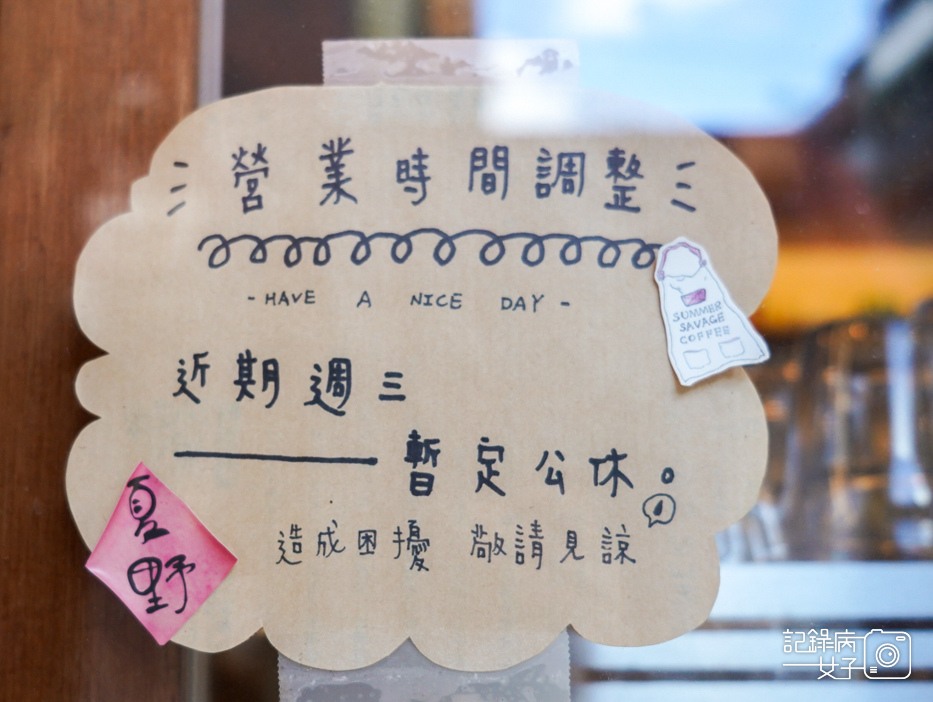 營業時間調整
- HAVE A NICE DAY -
SUMMER
SAVAGE
COFFEE
近期週三
——暫定公休。
造成困擾 敬請見諒
夏
野
記錄病
女子